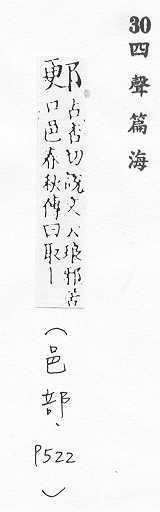 30四聲篇海
郠古杏切說文琅邪莒
邑春秋傳曰取丨
(邑部、P522)